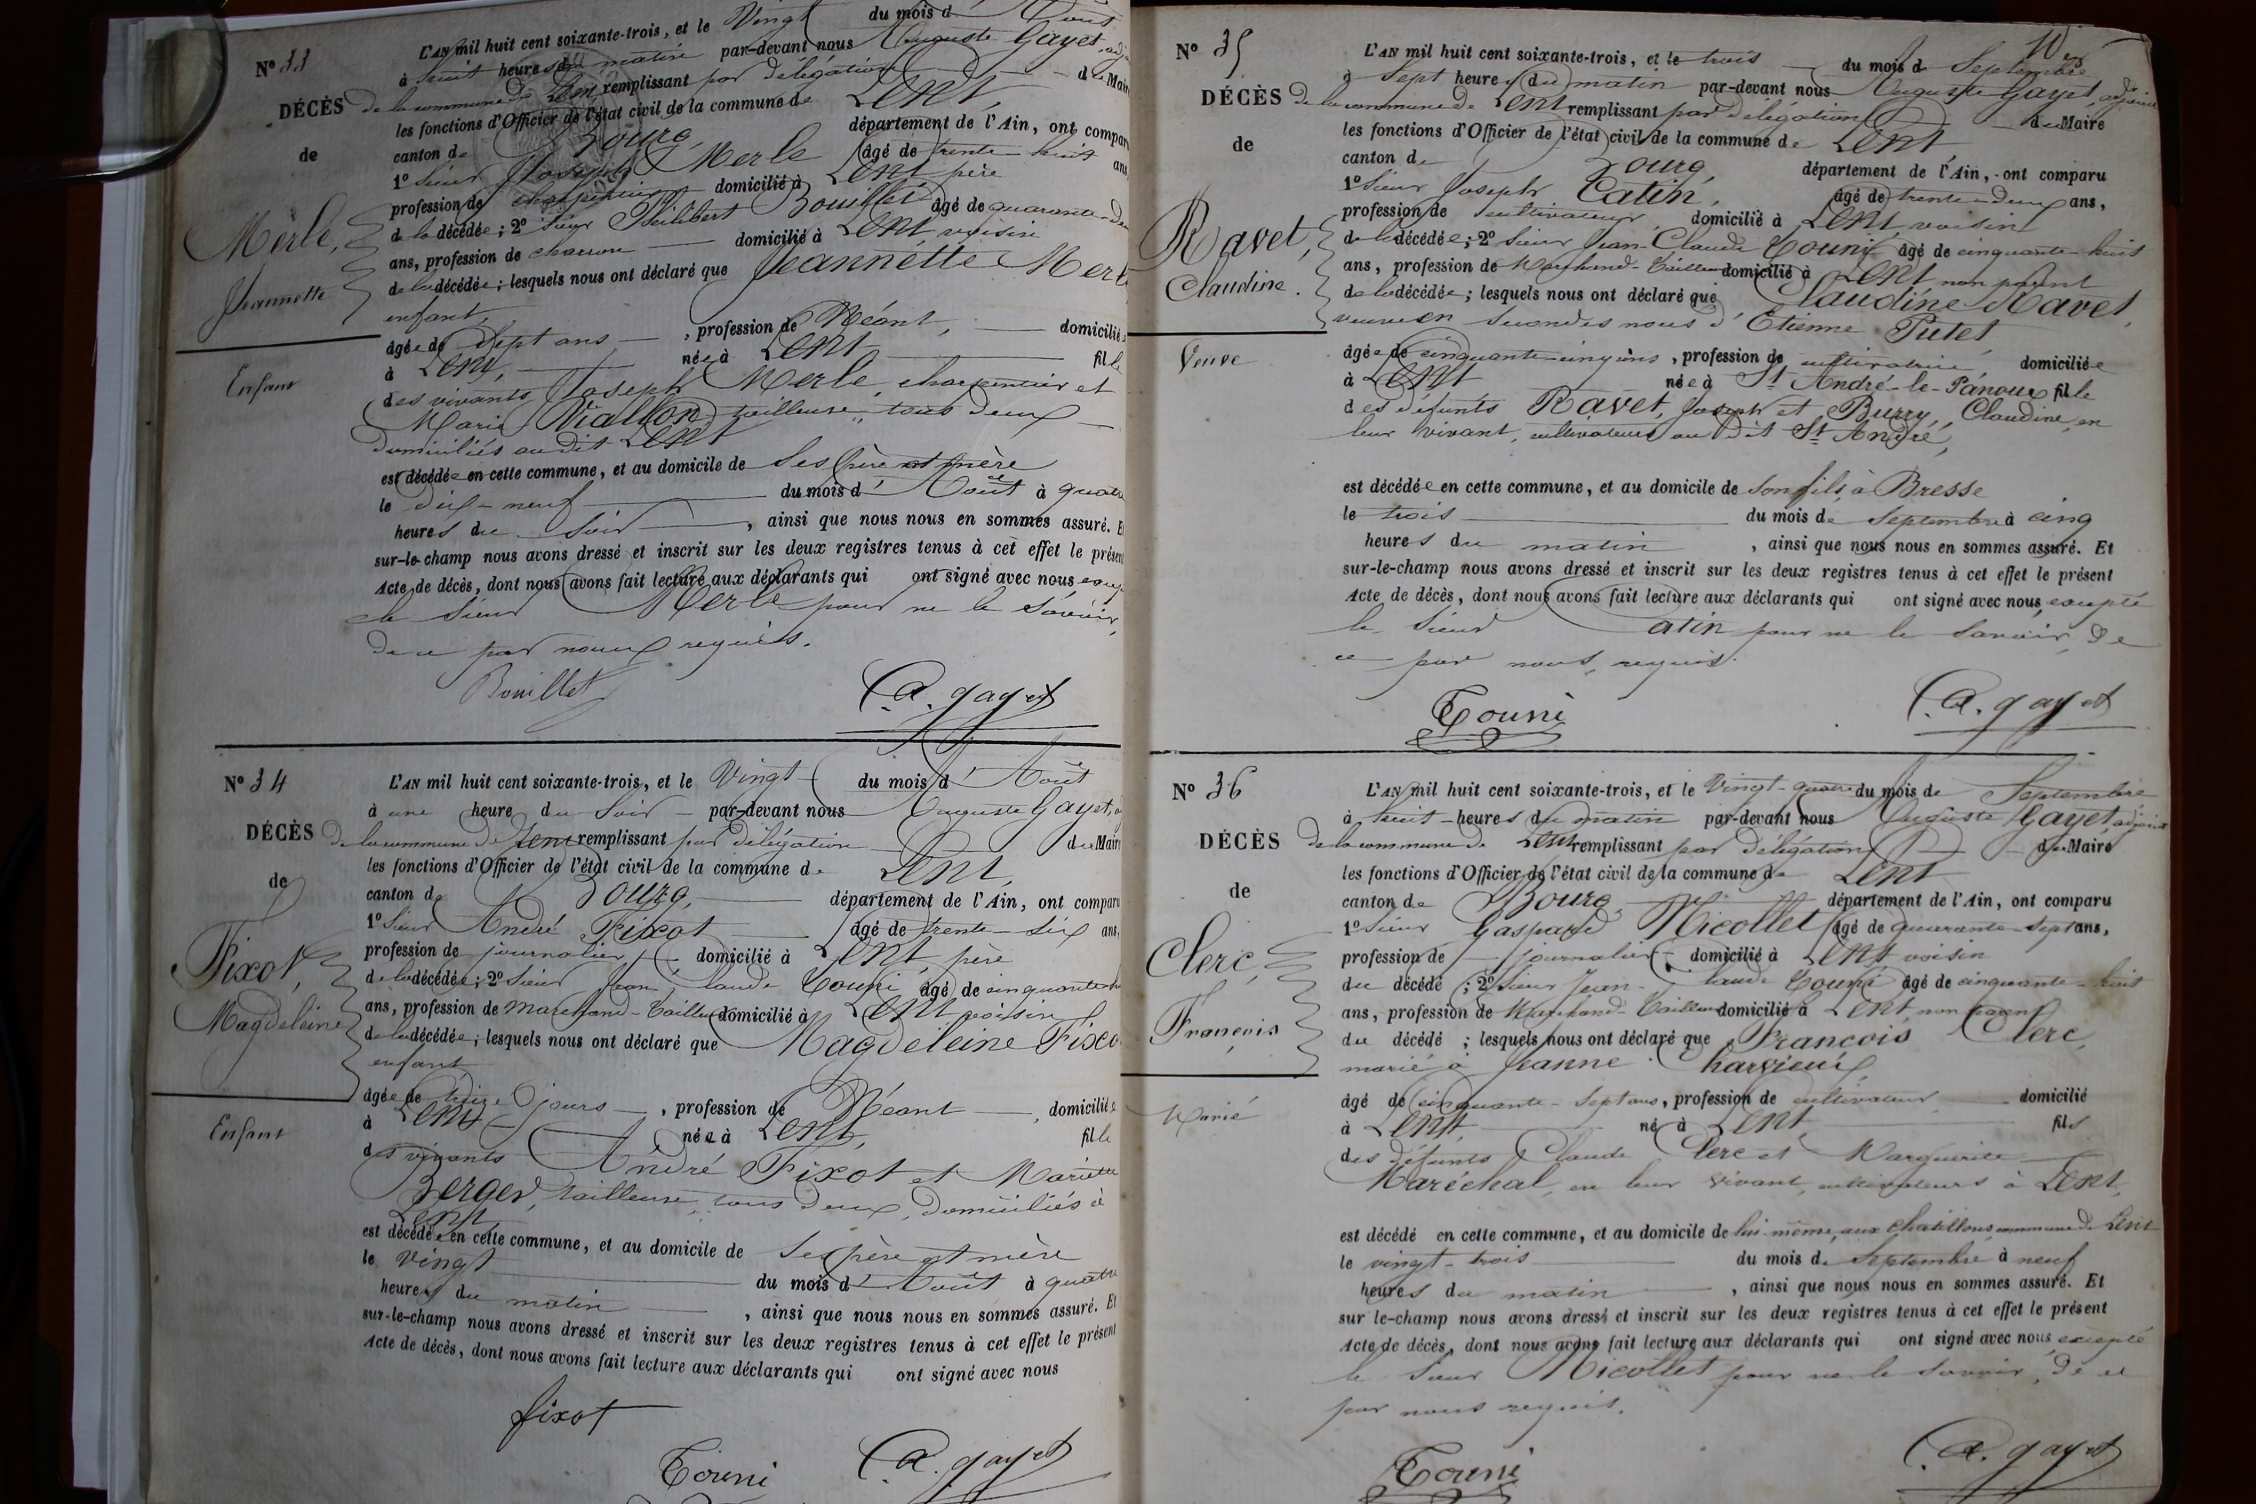 N° 33
DÉCÈS
de
Merle,
Jeannette
Enfant
L'AN mil huit cent soixante-trois, et le Vingt du mois d' Août
à huit heures du matin par-devant nous Auguste Gayet, adj
de la commune de Lent remplissant par délégation du Mair
les fonctions d'Officier de l'état civil de la commune de Lent,
canton de Bourg, département de l'Ain, ont compar
1° Sieur Joseph Merle âgé de trente-huit ans
profession de charpentier domicilié à Lent père
de la décédée; 2° Sieur Philibert Bouillet âgé de quarante-de
ans, profession de charron domicilié à Lent voisin
de la décédée; lesquels nous ont déclaré que Jeannette Merl
enfant,
âgée de Sept ans, profession de Néant, domiciliée
à Lent, née à Lent fille
des vivants Joseph Merle, charpentier et
Marie Viallon tailleuse, tous deux
domiciliés audit Lent
est décédée en cette commune, et au domicile de Ses père et mère
le dix-neuf du mois d' Août à quatre
heures du Soir, ainsi que nous nous en sommes assuré. Et
sur-le-champ nous avons dressé et inscrit sur les deux registres tenus à cet effet le présent
Acte de décès, dont nous avons fait lecture aux déclarants qui ont signé avec nous excep
le Sieur Merle pour ne le Savoir,
de ce par nous requis.
Bouillet
A. gayet
N° 34
DÉCÈS
de
Fixot,
Magdeleine
Enfant
L'AN mil huit cent soixante-trois, et le Vingt du mois d' Août
à une heure du Soir par-devant nous Auguste Gayet, a
de la commune de Lent remplissant par délégation du Mair
les fonctions d'Officier de l'état civil de la commune de Lent,
canton de Bourg, département de l'Ain, ont comparu
1° Sieur André Fixot âgé de trente-six ans,
profession de journalier, domicilié à Lent, père
de la décédée; 2° Sieur Jean Claude Touni, âgé de cinquante-hu
ans, profession de Marchand-Tailleur domicilié à Lent voisin
de la décédée; lesquels nous ont déclaré que Magdeleine Fixo
enfant
âgée de treize jours, profession de Néant, domiciliée
à Lent née à Lent, fille
des vivants André Fixot et Mariette
Berger, tailleuse, tous deux, domiciliés à
Lent
est décédée en cette commune, et au domicile de Ses père et mère
le vingt du mois d' Août à quatre
heures du matin, ainsi que nous nous en sommes assuré. Et
sur-le-champ nous avons dressé et inscrit sur les deux registres tenus à cet effet le présent
Acte de décès, dont nous avons fait lecture aux déclarants qui ont signé avec nous
fixot
Touni
A. gayet
N° 35
DÉCÈS
de
Ravet,
Claudine.
Veuve
Dix
L'AN mil huit cent soixante-trois, et le trois du mois de Septembre
à Sept heures du matin par-devant nous Auguste Gayet, adjoint
de la commune de Lent remplissant par délégation du Maire
les fonctions d'Officier de l'état civil de la commune de Lent
canton de Bourg, département de l'Ain, ont comparu
1° Sieur Joseph Catin, âgé de trente-deux ans,
profession de cultivateur, domicilié à Lent, voisin
de la décédée; 2° Sieur Jean-Claude Touni âgé de cinquante-huit
ans, profession de Marchand-Tailleur domicilié à Lent non parent
de la décédée; lesquels nous ont déclaré que Claudine Ravet,
veuve en Secondes noces d'Etienne Putet
âgée de cinquante-cinq ans, profession de cultivatrice domiciliée
à Lent née à St André-le-Panoux fille
des défunts Ravet, Joseph et Burry, Claudine, en
leur vivant, cultivateurs au dit St André,
est décédée en cette commune, et au domicile de Son fils, à Bresse
le trois du mois de Septembre à cinq
heures du matin, ainsi que nous nous en sommes assuré. Et
sur-le-champ nous avons dressé et inscrit sur les deux registres tenus à cet effet le présent
Acte de décès, dont nous avons fait lecture aux déclarants qui ont signé avec nous, excepté
le Sieur Catin pour ne le Savoir, de
ce par nous, requis.
Touni
A. gayet
N° 36
DÉCÈS
de
Clerc,
François
Marié
L'AN mil huit cent soixante-trois, et le Vingt-quatre du mois de Septembre
à huit heures du matin par-devant nous Auguste Gayet, adjoint
de la commune de Lent remplissant par délégation du Maire
les fonctions d'Officier de l'état civil de la commune de Lent
canton de Bourg, département de l'Ain, ont comparu
1° Sieur Gaspard Nicollet âgé de quarante-sept ans,
profession de journalier, domicilié à Lent voisin
du décédé; 2° Sieur Jean-Claude Touni âgé de cinquante-huit
ans, profession de Marchand-Tailleur domicilié à Lent, non parent
du décédé; lesquels nous ont déclaré que François Clerc,
marié à Jeanne Charvieux,
âgé de cinquante-sept ans, profession de cultivateur domicilié
à Lent, né à Lent fils
des défunts Claude Clerc et Marguerite
Maréchal, en leur vivant, cultivateurs à Lent,
est décédé en cette commune, et au domicile de lui-même aux Chatillons, commune de Lent
le vingt-trois du mois de Septembre à neuf
heures du matin, ainsi que nous nous en sommes assuré. Et
sur le-champ nous avons dressé et inscrit sur les deux registres tenus à cet effet le présent
Acte de décès, dont nous avons fait lecture aux déclarants qui ont signé avec nous, excepté
le Sieur Nicollet pour ne le Savoir, de ce
par nous requis.
Touni
A. gayet